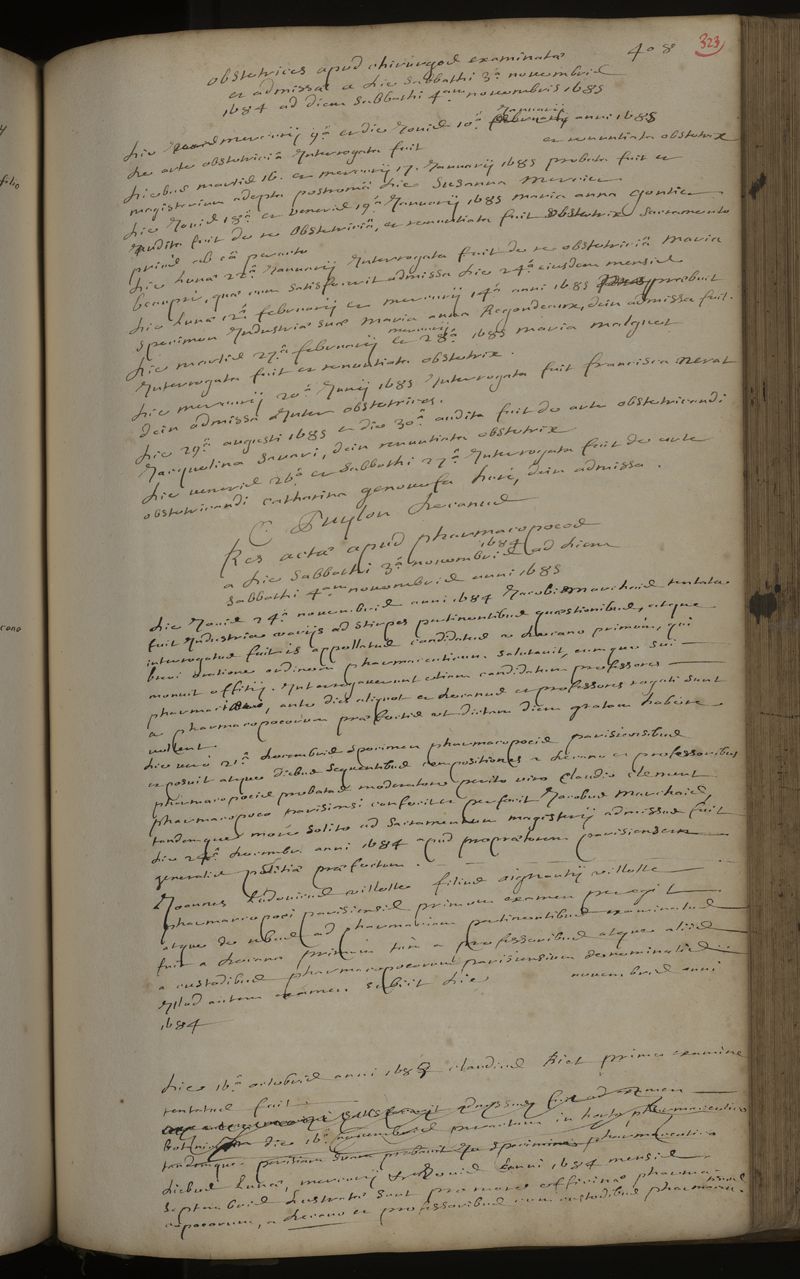 408 323
obstetrices apud chirurgos examinatæ
et admissæ a die sabbathi 3ª novembris
1684 ad diem sabbathi 4am novembris 1685
die mercurij 9ª et die Jovis 10ª Januarij anni 1685
de arte obstetriciâ Interrogata fuit et renuntiata obstetrix
diebus martis 16. et mercurij 17. Januarij 1685 probata fuit et
magisterium adepta postremâ die Susanna Mercier
die Jovis 18ª et veneris 19ª Januarij 1685 maria anna Gontier
Audita fuit de re obstetriciâ, et renuntiata fuit obstetrix sacramento
prius ab eâ peracto
die Lunæ 22ª Januarij Interrogata fuit de re obstetriciâ maria
beaupré, quæ cum satisfecerit admissa die 24ª eiusdem mensis
die Lunæ 12ª februarij et mercurij 14ª anni 1685 præbuit
specimen Industriæ suæ maria anna Regondeaux, dein admissa fuit.
die martis 27ª februarij et mercurij 28ª 1685 maria malquet
Interrogata fuit et renuntiata obstetrix.
die mercurij 20ª Junij 1685 Interrogata fuit francisca nerat
dein admissa Inter obstetrices.
die 29ª augusti 1685 et die 30ª audita fuit de arte obstetricandi
Jacquelina savari, dein renuntiata obstetrix
die veneris 26ª et sabbathi 27ª Interrogata fuit de arte
obstetricandi catharina genovefa dein admissa.
C Puylon decanus
Res actæ apud pharmacopoeos
a die sabbathi 3ª novembris 1684 ad diem
sabbathi 4am novembris anni 1685
die Jovis 24ª novembris anni 1684 Jacobi marchais tentata
fuit Industria varijs ad stirpes pertinentibus quæstionibus, atque
interrogatus fuit is appellatus candidatus a decano primùm, qui
brevi oratione ordinem pharmaceuticum salutavit, eumque sui
monuit offitij. Interrogaverunt etiam candidatum professores
pharmaciæ, ante dies aliquot et decanus et professores rogati sunt
a pharmacopoeorum præfectis ut dictam diem gratam habere
vellent.
die verò 21ª decembris specimen pharmacopoeis parisiensibus
exposuit atque diebus sequentibus compositiones a decano et professoribus
pharmacopoeis probatas moderatore perito viro Claudio Clement
pharmacopoeo parisiensi confecit et perfecit Jacobus marchais,
tandemque more solito ad sacramentum magisterij admissus fuit
die 24ª decembr. anni 1684 apud proprætorem parisiensem
generalis politiæ præfectum.
Joannes Ludovicus villette filius villette
pharmacopoei parisiensis primum examen peregit
atque de rebus ad pharmaciam pertinentibus examinatus
fuit a decano primùm tum a professoribus atque alijs
a custodibus pharmacopoeorum parisiensium denominatis
Illud autem examen subijt die novembris anni
1684
die 16ª octobris anni 1684 claudius Riet primo examine
tentatus fuit
die 16ª novembris in horto pharmaceutico
tandemque peritiam suam probavit specimine pharmaceutico
diebus Lunæ, mercurij et Jovis anni 1684 mensis
septembris lustratæ sunt pro more officinæ pharma-
copoeorum, a decano et professoribus cum custodibus